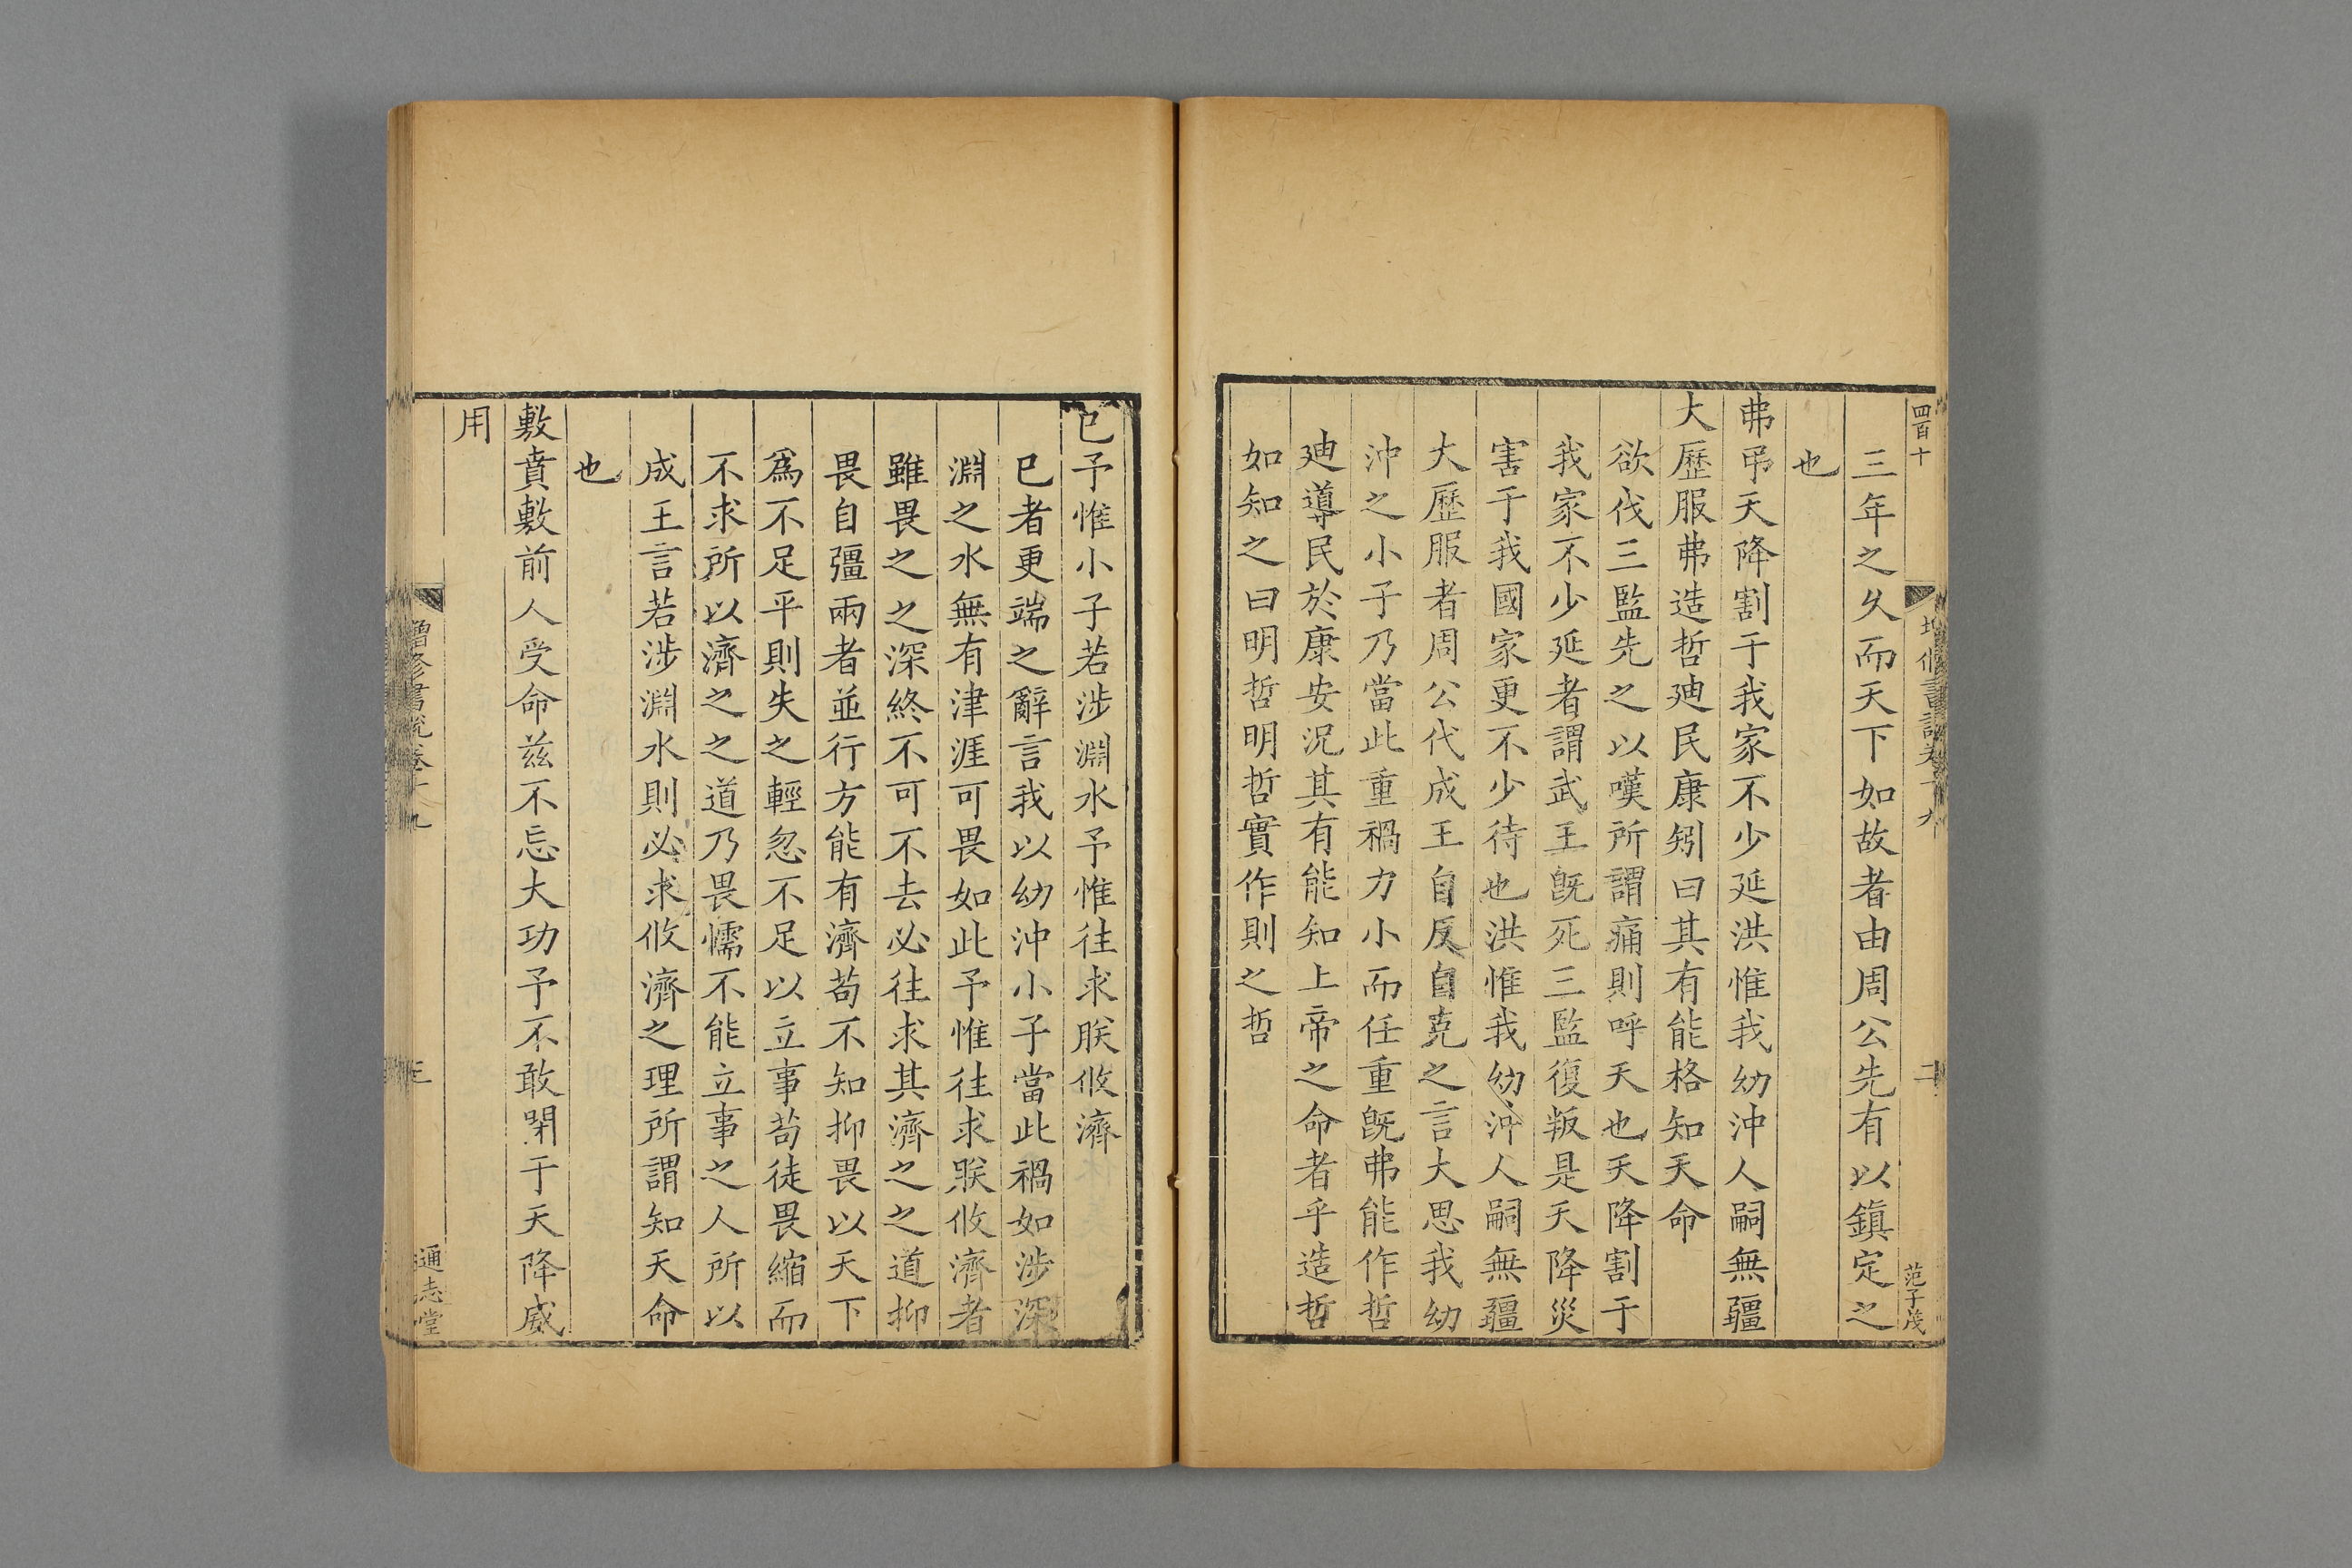 四百十
三年之久而天下如故者由周公先有以鎮定之
也
弗弔天降割于我家不少延洪惟我幼沖人嗣無疆
大歷服弗造哲廸民康矧曰其有能格知天命
欲伐三監先之以嘆所謂痛則呼天也天降割于
我家不少延者謂武王旣死三監復叛是天降災
害于我國家更不少待也洪惟我幼沖人嗣無疆
大歷服者周公代成王自反自克之言大思我幼
沖之小子乃當此重禍力小而任重旣弗能作哲
廸導民於康安況其有能知上帝之命者乎造哲
如知之曰明哲明哲實作則之哲
二
范子茂
已予惟小子若涉淵水予惟往求朕攸濟
已者更端之辭言我以幼沖小子當此禍如涉深
淵之水無有津涯可畏如此予惟往求朕攸濟者
雖畏之之深終不可不去必往求其濟之之道抑
畏自彊兩者並行方能有濟苟不知抑畏以天下
爲不足平則失之輕忽不足以立事苟徒畏縮而
不求所以濟之之道乃畏懦不能立事之人所以
成王言若涉淵水則必求攸濟之理所謂知天命
也
敷賁敷前人受命茲不忘大功予不敢閉于天降威
用
增修書說卷十九
三
通志堂